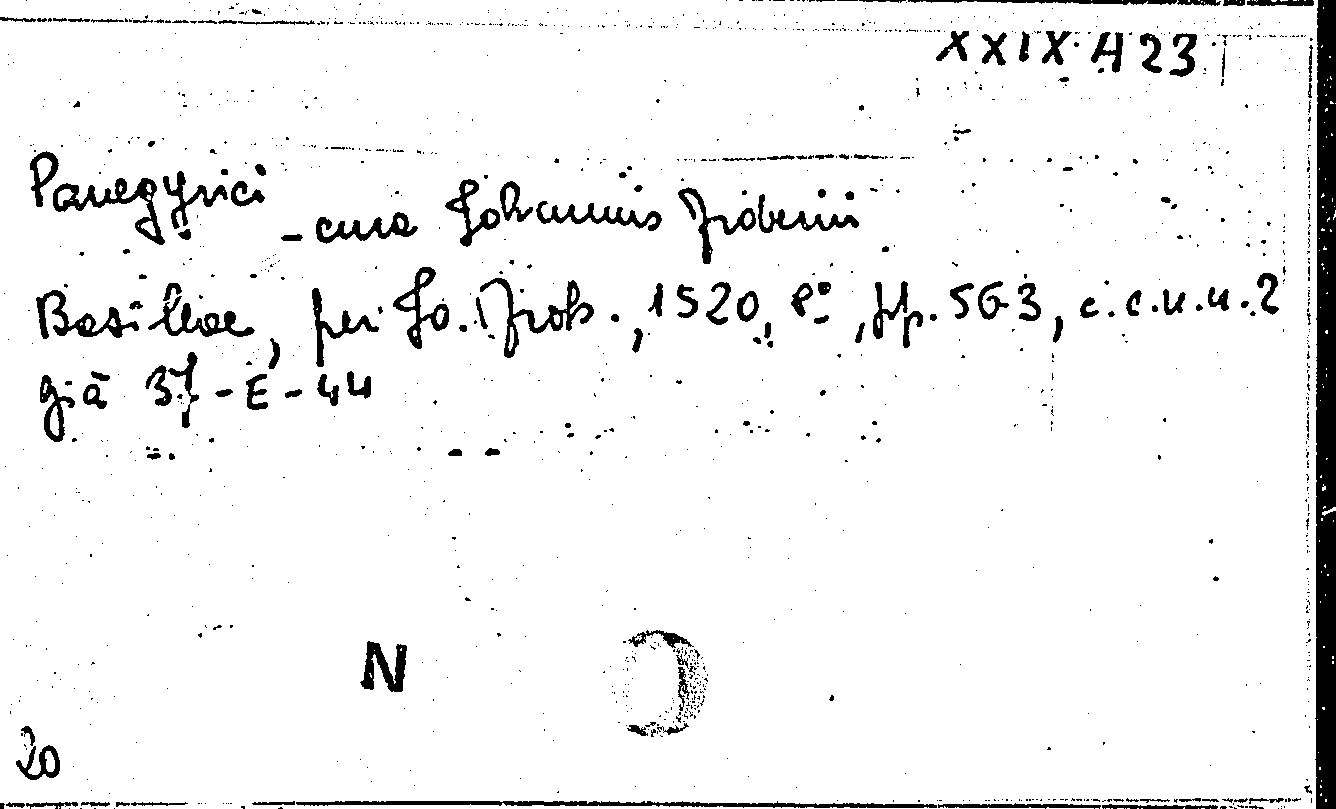 XXIX.A 23
Panegyrici
- cura Johannis Frobenii
Basileae, per Jo. Frob., 1520, 8º, pp. 563, c.c.n.n. 2
già 37-E-44
N
20